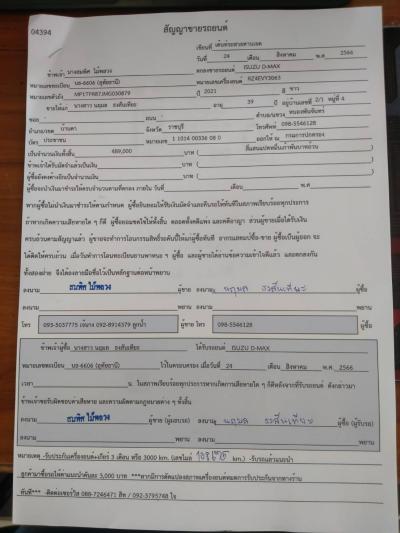 04394
สัญญาขายรถยนต์
เขียนที่ เต้นท์รถสวยตามเขต
วันที่ 24 เดือน สิงหาคม พ.ศ 2566
ข้าพเจ้า นางสมพิศ ไม้พลวง ตกลงขายรถยนต์ ISUZU D-MAX
หมายเลขทะเบียน บธ-6606 (อุทัยธานี) หมายเลขเครื่องยนต์ RZ4EVY3063
หมายเลขตัวถัง MP1TFR87JMG030879 ปี 2021 สี ขาว
ขายให้แก่ นางสาว นฤมล อายุ 39 ปี อยู่บ้านเลขที่ 2/1 หมู่ที่ 4
ซอย - ถนน - ตำบล/แขวง หนองพันจันทร์
อำเภอ/เขต บ้านคา จังหวัด ราชบุรี โทรศัพท์ 098-5546128
บัตร ประชาชน หมายเลข 1 1014 00336 08 0 ออกให้ ณ กรมการปกครอง
เป็นจำนวนเงินทั้งสิ้น 489,000 บาท ( สี่แสนแปดหมื่นเก้าพันบาทถ้วน )
ข้าพเจ้าได้รับมัดจำแล้วเป็นเงิน บาท ( )
ผู้ซื้อยังคงค้างอีกเป็นจำนวนเงิน บาท ( )
ผู้ซื้อจะนำเงินมาชำระให้ครบถ้วนตามที่ตกลง ภายใน วันที่ เดือน พ.ศ
หากผู้ซื้อไม่นำเงินมาชำระให้ตามกำหนด ผู้ซื้อยินยอมให้ริบเงินมัดจำและคืนรถให้ทันทีในสภาพเรียบร้อยทุกประการ
ถ้าหากเกิดความเสียหายใด ๆ ก็ดี ผู้ซื้อยอมชดใช้ให้ทั้งสิ้น ตลอดทั้งคดีแพ่ง และคดีอาญา ส่วนผู้ขายเมื่อได้รับเงิน
ครบถ้วนตามสัญญาแล้ว ผู้ขายจะทำการโอนกรรมสิทธิ์รถคันนี้ให้แก่ผู้ซื้อทันที
ได้คิดให้ครบถ้วน เมื่อวันทำการโอนทะเบียนยานพาหนะ ฯ ผู้ซื้อ และผู้ขายได้อ่านข้อความเข้าใจดีแล้ว และตกลงกัน
ทั้งสองฝ่าย จึงได้ลงลายมือชื่อไว้เป็นหลักฐานต่อหน้าพยาน
ลงนาม สมพิศ ไม้พลวง ผู้ขาย ลงนาม นฤมล ผู้ซื้อ
ลงนาม พยาน ลงนาม พยาน
โทร 093-5037775 เจ๊นาง 092-8914379 ลูกน้ำ ผู้ขาย โทร 098-5546128 ผู้ซื้อ
ข้าพเจ้าผู้ซื้อ นางสาว นฤมล ได้รับรถยนต์ ISUZU D-MAX
หมายเลขทะเบียน บธ-6606 (อุทัยธานี) ไว้ในครอบครอง เมื่อวันที่ 24 เดือน สิงหาคม พ.ศ 2566
เวลา น. ในสภาพเรียบร้อยทุกประการหากเกิดการเสียหายใด ๆ ก็ดีหลังจากที่รับรถยนต์ ดังกล่าวมา
ข้าพเจ้าขอรับผิดชอบค่าเสียหาย และความผิดตามกฎหมายต่าง ๆ ทั้งสิ้น
ลงนาม สมพิศ ไม้พลวง ผู้ขาย (ผู้มอบรถ) ลงนาม นฤมล ผู้ซื้อ (ผู้รับรถ)
ลงนาม พยาน ลงนาม พยาน
หมายเหตุ -รับประกันเครื่องยนต์+เกียร์ 3 เดือน หรือ 3000 km. (เลขไมล์ km.) -รับรถแล้ว
ลูกค้ามาซื้อรถให้ค่าแนะนำคันละ 3,000 บาท ***หากมีการดัดแปลงสภาพเครื่องยนต์หมดการรับประกันจากทางร้าน
ทันที*** -ติดต่อเซอร์วิส 088-7246471 สิท / 092-3795748 ใจ